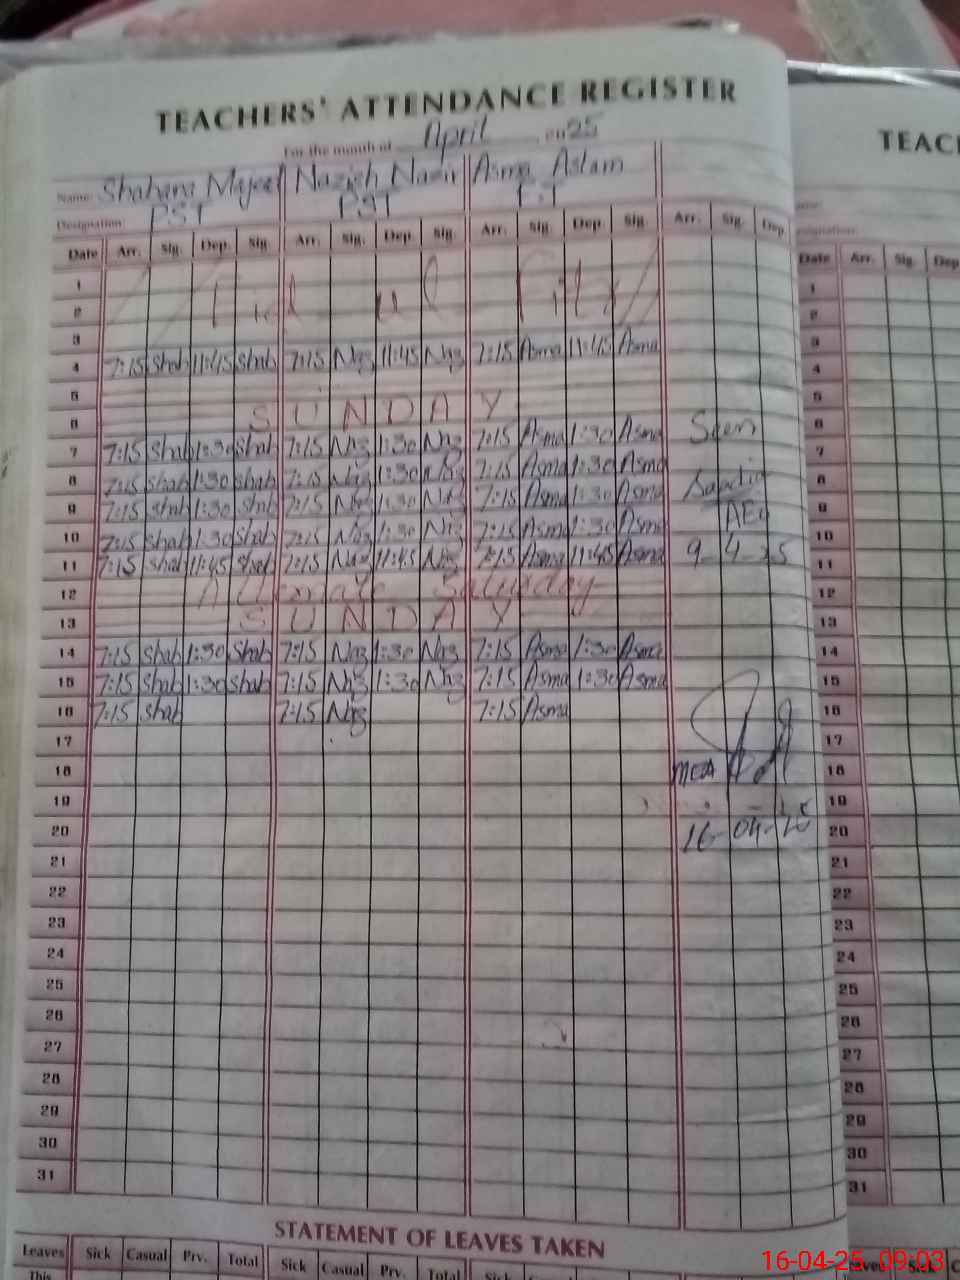 TEACHERS' ATTENDANCE REGISTER
For the month of April 2025
Name: Shahana Majeed Nazish Nazir Asma Aslam
Designation PST PST
Date Arr. Sig. Dep. Sig. Arr. Sig. Dep. Sig. Arr. Sig. Dep. Sig. Arr. Sig. Dep.
1
2 Eid ul Fitr
3
4 7:15 Shah 11:45 Shah 7:15 Naz 11:45 Naz 7:15 Asma 11:45 Asma
5
6 SUNDAY
7 7:15 Shah 1:30 Shah 7:15 Naz 1:30 Naz 7:15 Asma 1:30 Asma Seen
8 7:15 Shah 1:30 Shah 7:15 Naz 1:30 Naz 7:15 Asma 1:30 Asma
9 7:15 Shah 1:30 Shah 7:15 Naz 1:30 Naz 7:15 Asma 1:30 Asma
10 7:15 Shah 1:30 Shah 7:15 Naz 1:30 Naz 7:15 Asma 1:30 Asma AEO
11 7:15 Shah 11:45 Shah 7:15 Naz 11:45 Naz 7:15 Asma 11:45 Asma 9-4-25
12 Alternate Saturday
13 SUNDAY
14 7:15 Shah 1:30 Shah 7:15 Naz 1:30 Naz 7:15 Asma 1:30 Asma
15 7:15 Shah 1:30 Shah 7:15 Naz 1:30 Naz 7:15 Asma 1:30 Asma
16 7:15 Shah 7:15 Naz 7:15 Asma
17
18 MEA
19
20 16-04-25
21
22
23
24
25
26
27
28
29
30
31
STATEMENT OF LEAVES TAKEN
Leaves Sick Casual Prv. Total Sick Casual Prv. Total Sick
This
TEAC
Date Arr. Sig. Dep
1
2
3
4
5
6
7
8
9
10
11
12
13
14
15
16
17
18
19
20
21
22
23
24
25
26
27
28
29
30
31
16-04-25 09:03